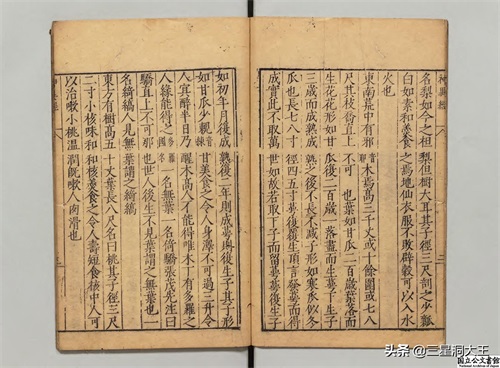 名梨如今之柤梨但樹大耳其子徑三尺剖之少瓤
白如素和羹食之爲地仙衣服不敗辟穀可以入水
火也
東南荒中有邪木焉高三千丈或十餘圍或七八
尺其枝喬直上不可也葉如甘瓜二百歲葉落而
生花花形如甘瓜後二百歲落盡而生萼萼下生子
三歲而成熟成熟之後不長不減子形如寒瓜似冬
瓜也長七八寸徑四五寸萼復覆生頂言發萼而得
成實此不取萬世如故若取子而留萼萼復生子
如初年月復成熟後二年則成萼復生子其子形
如甘瓜少親甘美食之令人身澤不可過三升令
人冥醉半日乃醒木高人不能得唯木下有多羅之
人緣能得之一名無葉一名倚驕張茂先注曰
驕直上不可那也世人後生不見葉謂之無葉也一
名綺縞人見無葉謂之綺縞
東方有樹高五十丈葉長八尺名曰桃其子徑三尺
二寸小核味和和核羹食之令人壽短食核中人可
以治嗽小桃溫潤既嗽人向滑也
頭条 @三星洞大王
国立公文書館
National Archives of Japan